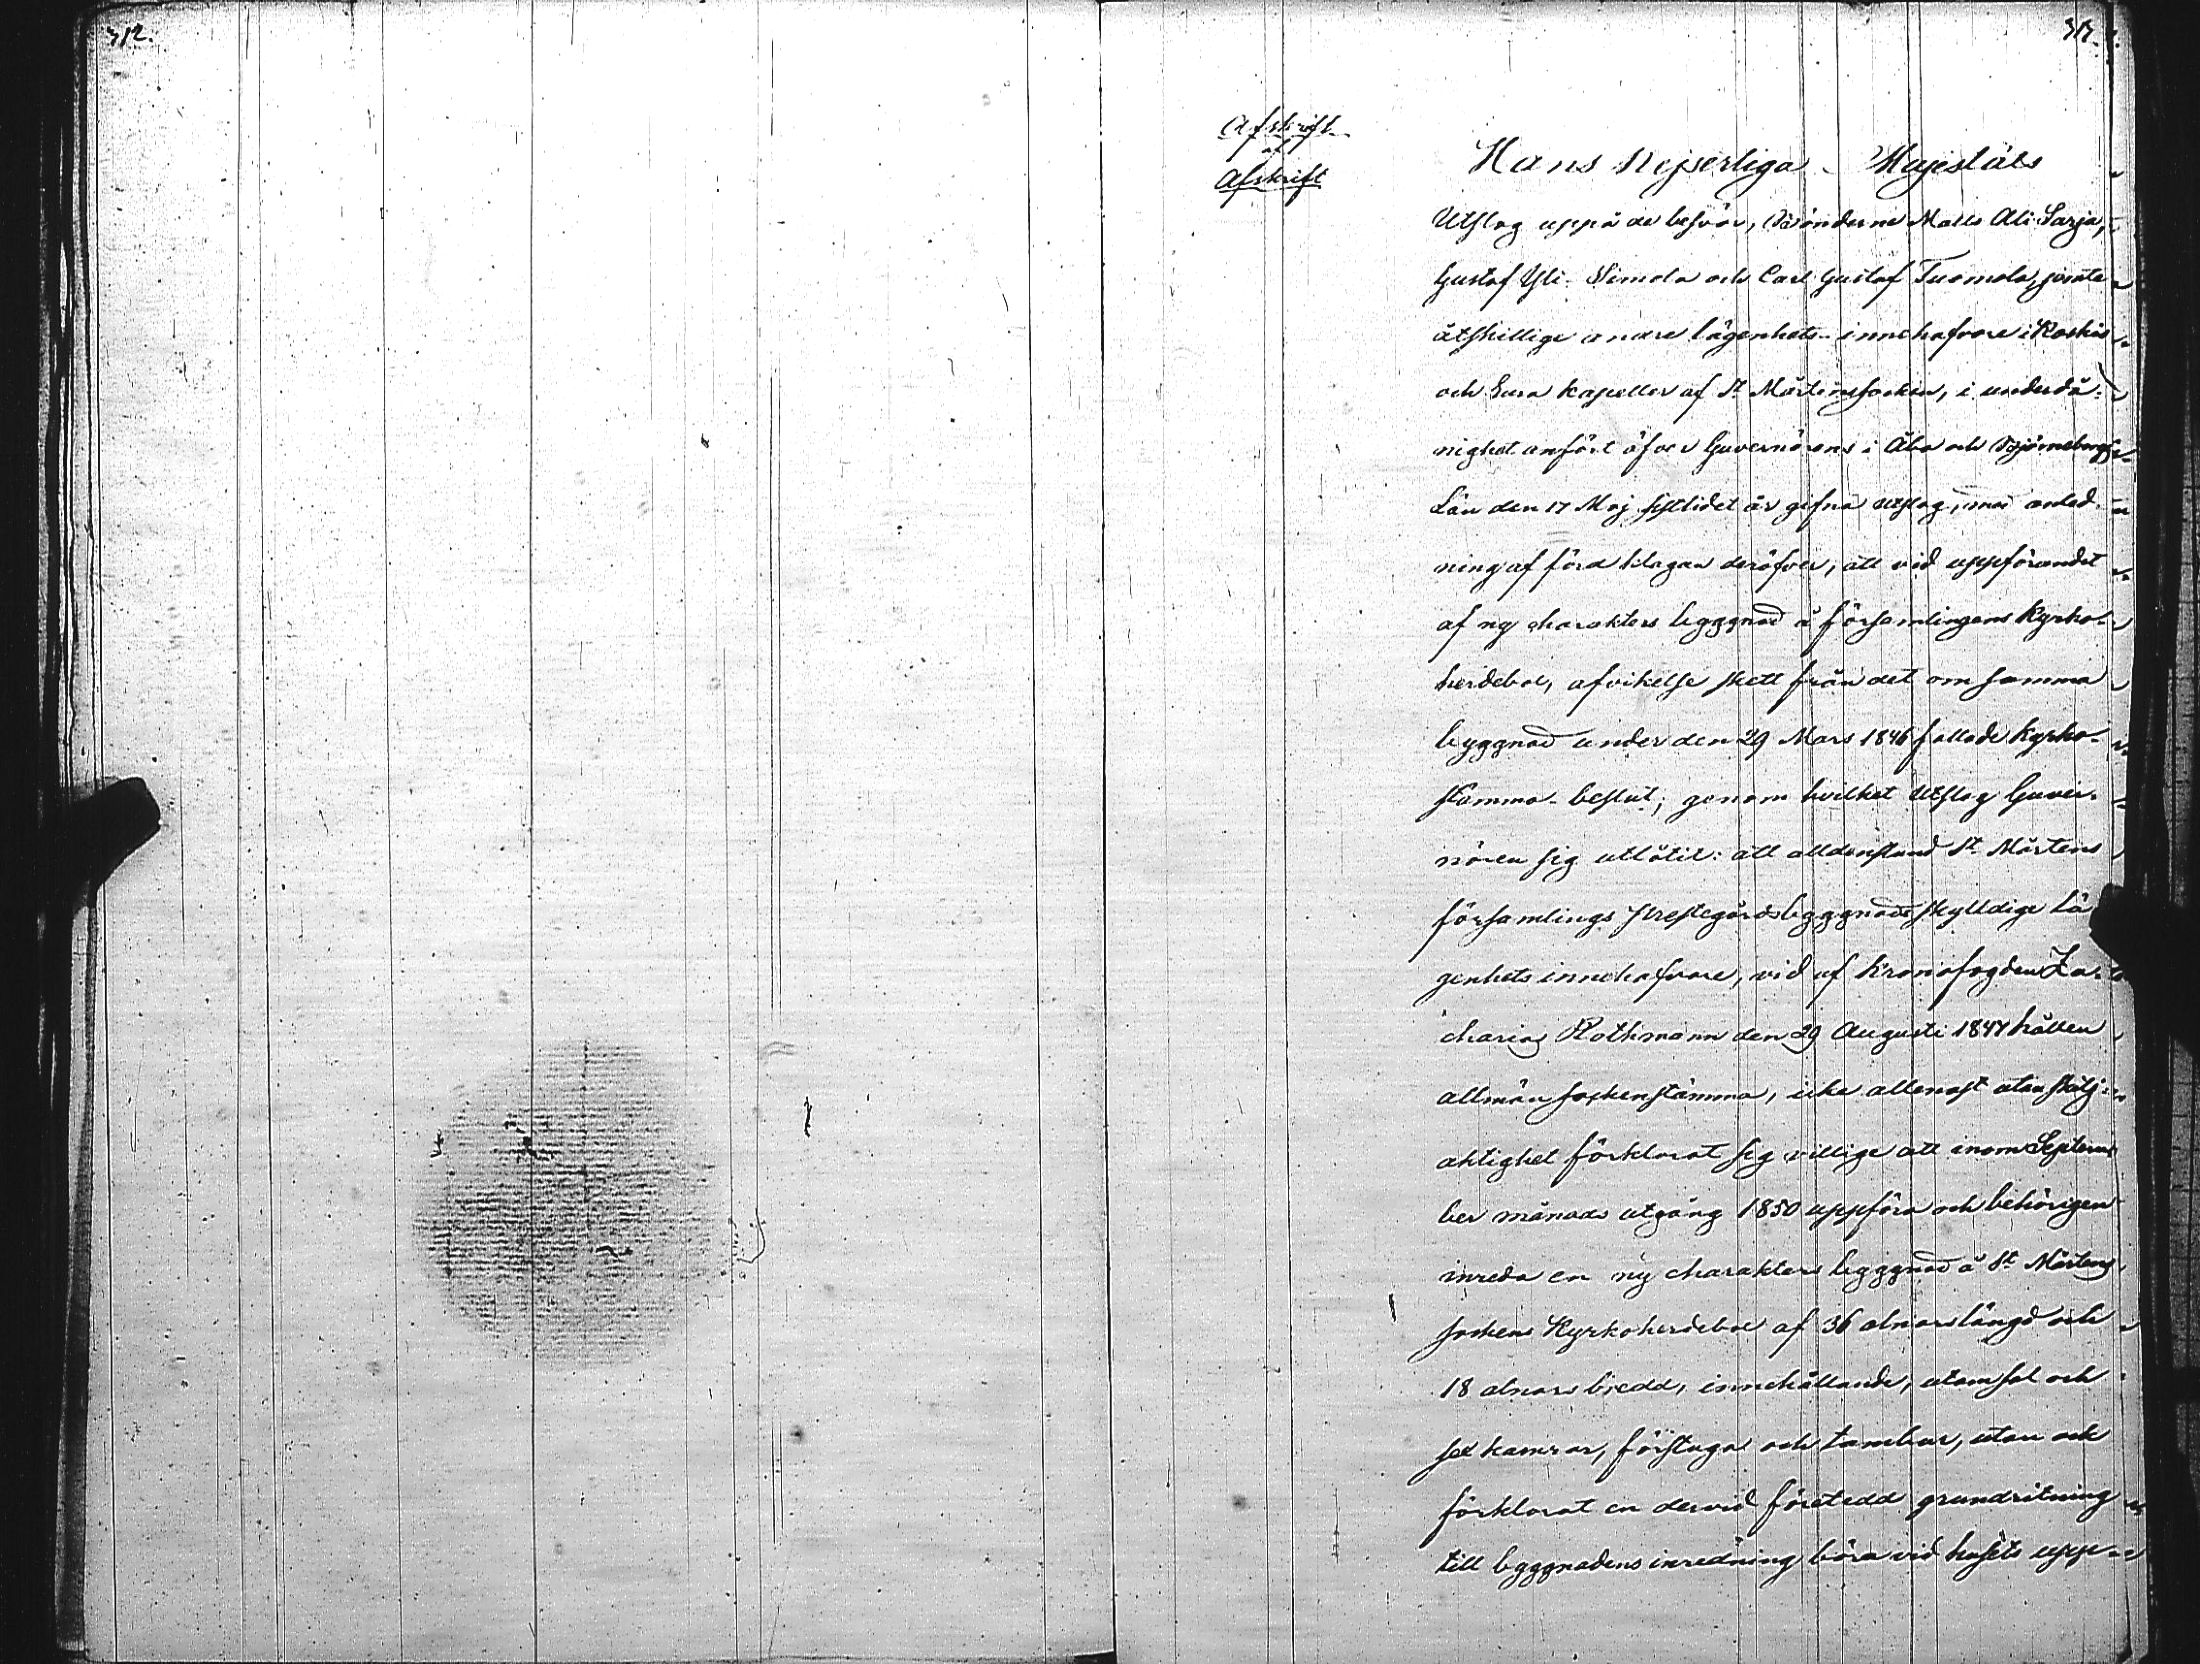 312.
313.
Afskrift
af
Afskrift
Hans Kejserliga Majestäts
Utslag uppå de besvär, Bönderne Matts Ali-Sarja,
Gustaf Yli-Simola och Carl Gustaf Tuomola, jemte
åtskillige andre lägenhets-innehafvare i Koskis
och Eura kapeller af St Mårtens socken, i underdå-
nighet anfört öfver Guvernörens i Åbo och Björneborgs
Län den 17 Maj sistlidet år gifna utslag, med anled-
ning af förd klagan deröfver, att vid uppförandet
af ny charakters byggnad å församlingens Kyrko-
herdeboe, afvikelse skett från det om samma
byggnad under den 29 Mars 1846 fattade kyrko-
stämmo-beslut; genom hvilket Utslag Guver-
nören sig utlåtit: att alldenstund St Mårtens
församlings prestegårdsbyggnadsskyldige lä-
genhets innehafvare, vid af Kronofogden Za-
charias Rothmann den 29 Augusti 1847 hållen
allmän sockenstämma, icke allenast utan skilj-
aktighet förklarat sig villige att inom Septem-
ber månads utgång 1850 uppföra och behörigen
inreda en ny charakters byggnad å St Mårtens
sockens Kyrkoherdeboe af 36 alnars längd och
18 alnars bredd, innehållande, utom sal och
sex kamrar, förstuga och tambur, utan ock
förklarat en dervid företedd grundritning
till byggnadens inredning böra vid husets upp-